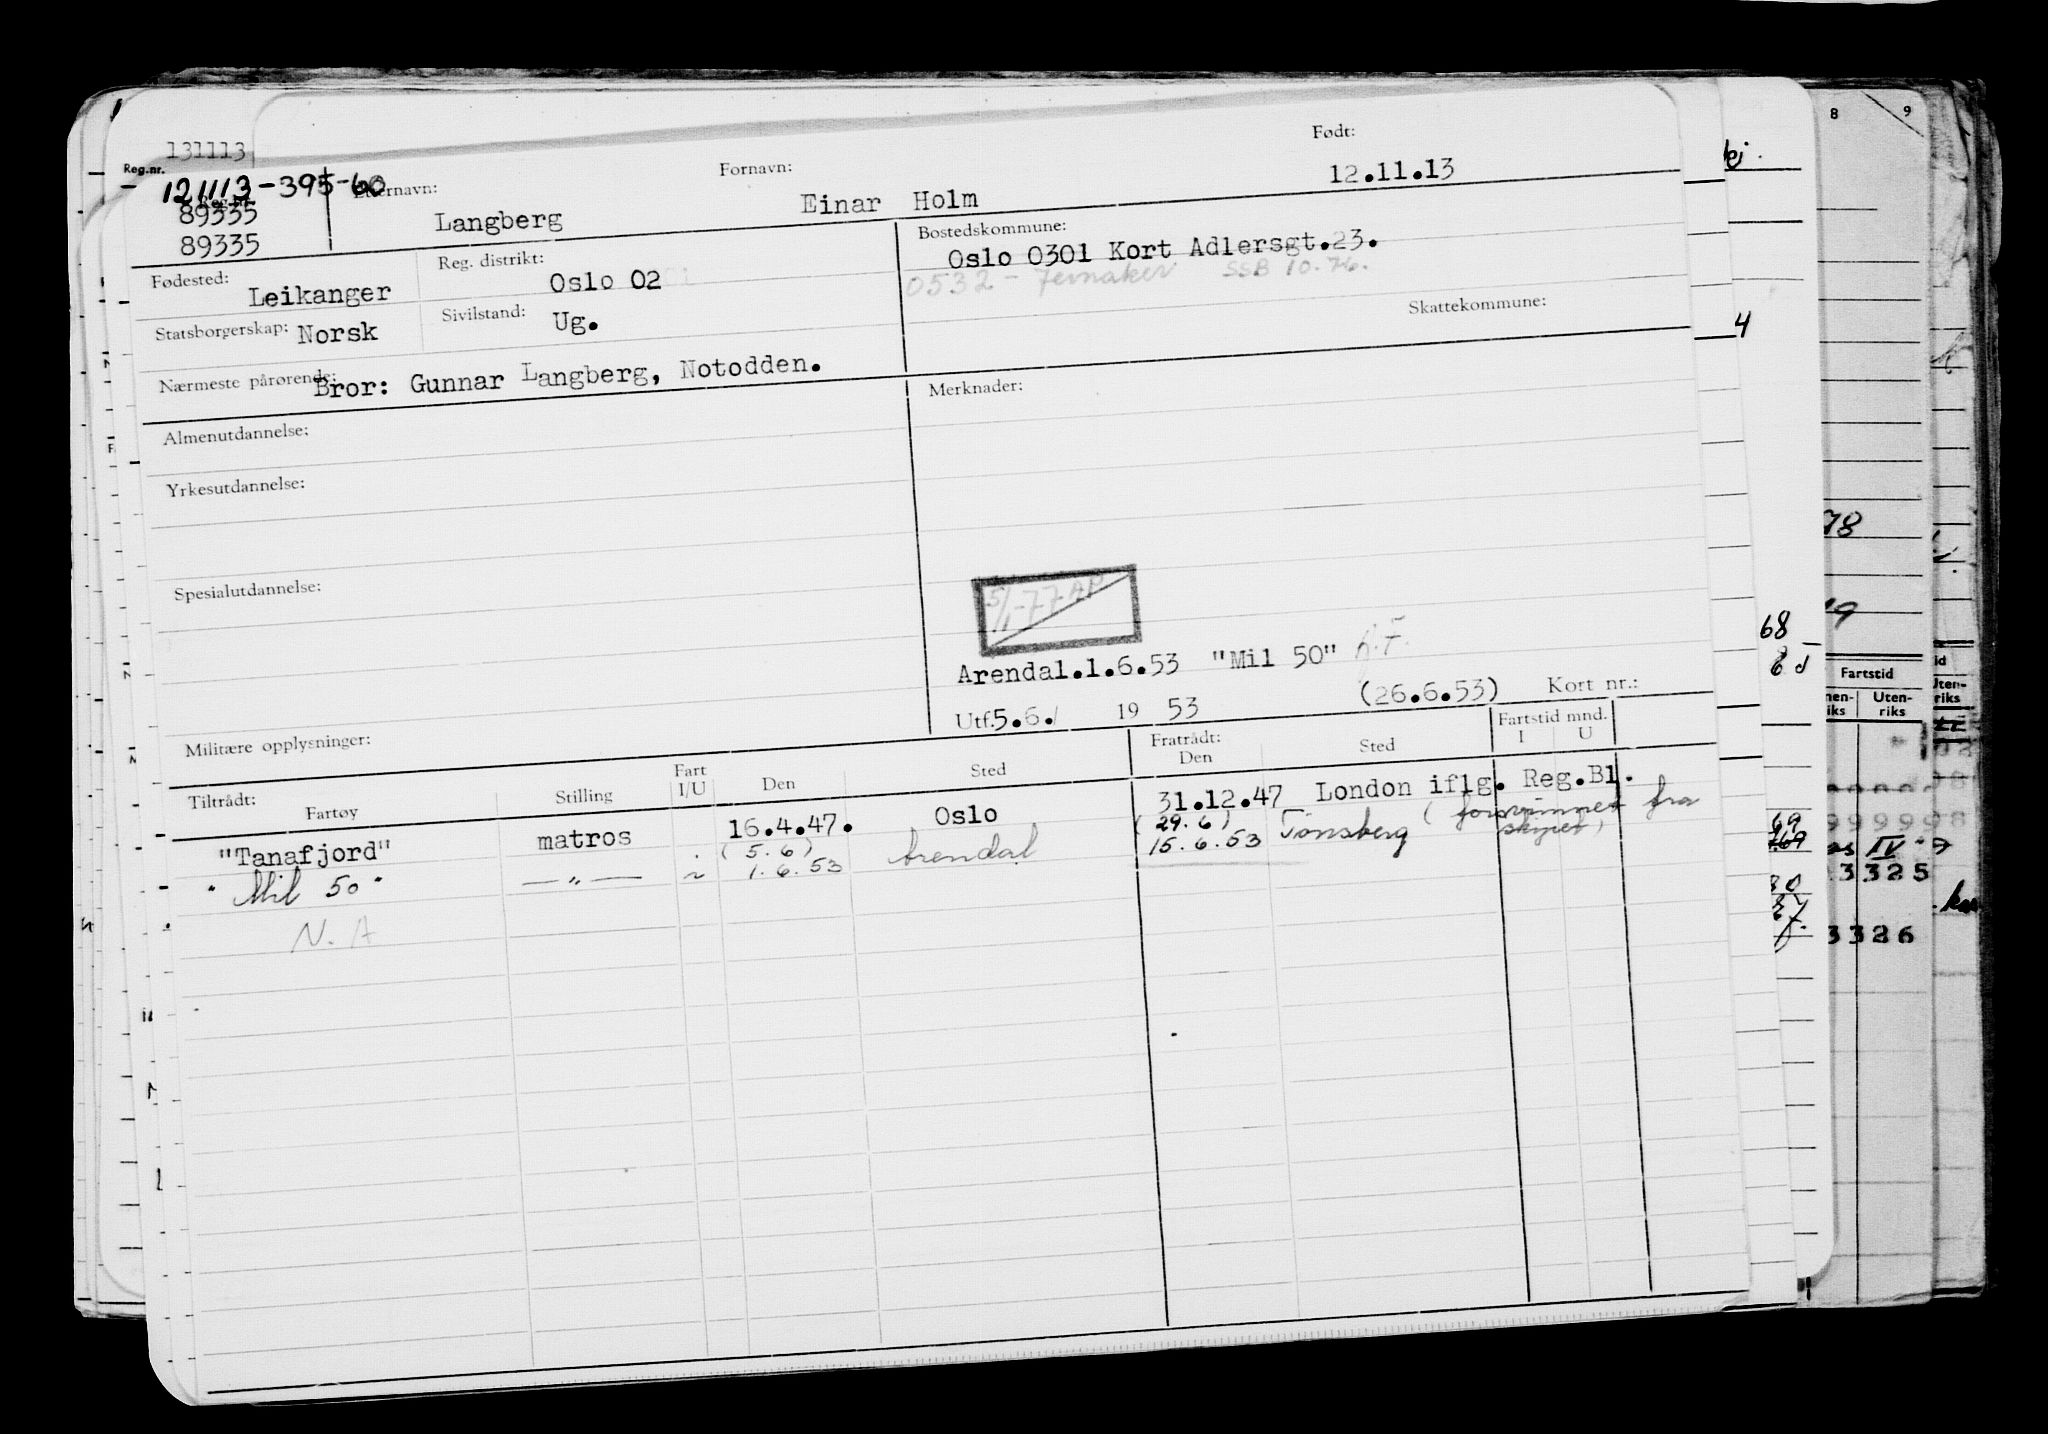 131113
Reg.nr. 121113-395-60
89335
89335
Etternavn: Langberg
Fornavn: Einar Holm
Født: 12.11.13
Fødested: Leikanger
Reg. distrikt: Oslo 02
Bostedskommune: Oslo 0301 Kort Adlersgt.23.
0532 - Jevnaker SSB 10.76.
Statsborgerskap: Norsk
Sivilstand: Ug.
Skattekommune:
Nærmeste pårørende: Bror: Gunnar Langberg, Notodden.
Merknader:
Almenutdannelse:
Yrkesutdannelse:
Spesialutdannelse:
5/1-77 AP
Arendal.1.6.53 "Mil 50"
Utf. 5.6. 19 53 (26.6.53) Kort nr.:
Militære opplysninger:
Tiltrådt: Fartøy Stilling Fart I/U Den Sted Fratrådt: Den Sted Fartstid mnd. I U
"Tanafjord" matros 16.4.47. Oslo 31.12.47 London iflg. Reg.Bl.
(5.6) (29.6) (forsvinnet fra
"Mil 50" —"— 1.6.53 Arendal 15.6.53 Tønsberg skipet)
N.A
8 9
4
68
78
19
Fartstid
Uten-
riks
69
3325
3326